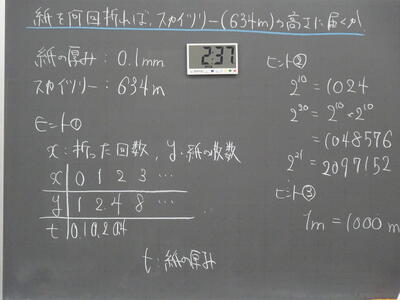 紙を何回折れば、スカイツリー(634m)の高さに届くか
紙の厚み:0.1mm
スカイツリー:634m
2:37
ヒント①
x:折った回数, y:紙の枚数
x 0 1 2 3 …
y 1 2 4 8 …
t 0.1 0.2 0.4
t:紙の厚み
ヒント②
2^10 = 1024
2^20 = 2^10 × 2^10
= 1048576
2^21 = 2097152
ヒント③
1m = 1000m